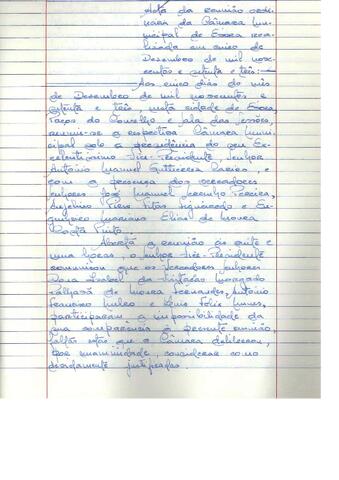 Acta da reunião ordi-
nária da Câmara Mu-
nicipal de Évora rea-
lizada em cinco de
Dezembro de mil nove-
centos e setenta e três:
Aos cinco dias do mês
de Dezembro de mil novecentos e
setenta e três, nesta cidade de Évora,
Paços do Concelho e sala das sessões,
reuniu-se a respectiva Câmara Muni-
cipal sob a presidência do seu Ex-
celentíssimo Vice-Presidente, Senhor
António Manuel e
com a presença dos vereadores
senhores José Manuel Pereira,
Pires e En-
genheiro Mariano Elias de Moura
Costa Pinto.
Aberta a reunião às vinte e
uma horas, o senhor Vice-Presidente
comunicou que os Vereadores senhores
Dona Isabel da Visitação Morgado
de Moura Fernandes, António
Francisco e Luís Félix Nunes,
participaram a impossibilidade da
sua comparência à presente reunião,
faltas estas que a Câmara deliberou,
por unanimidade, considerar como
devidamente justificadas.